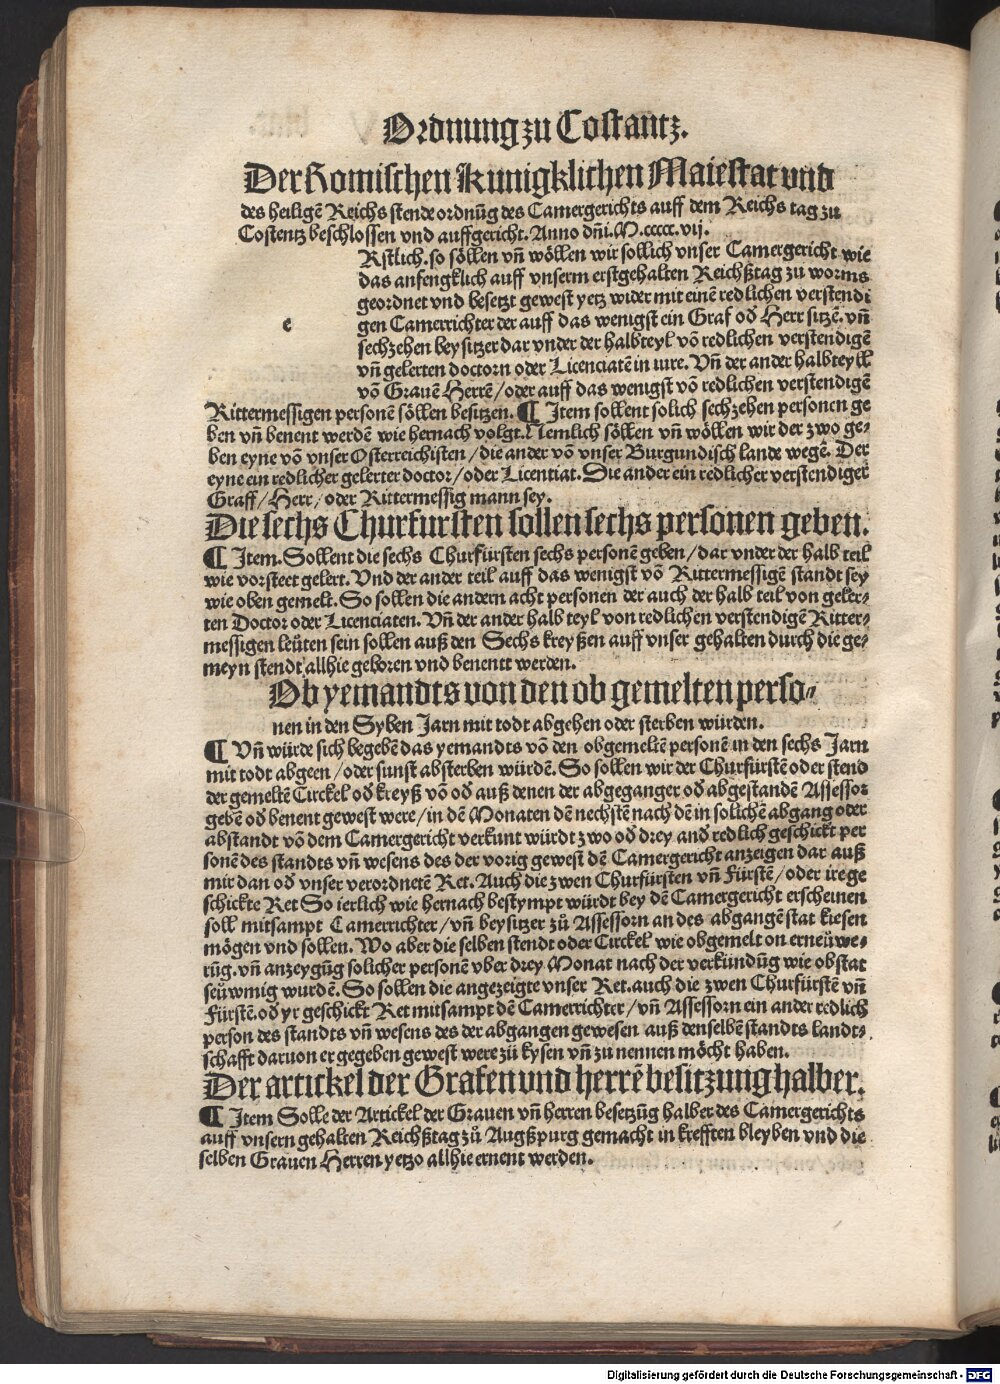 Ordnung zu Costantz.
Der Romischen Kunigklichen Maiestat vnd
des heiligẽ Reichs stende ordnũg des Camergerichts auff dem Reichs tag zu
Costentz beschlossen vnd auffgericht. Anno dñi. M.ccccc.vij.
Rstlich. so söllen vñ wöllen wir sollich vnser Camergericht wie
das anfengklich auff vnserm erstgehalten Reichßtag zu worms
geordnet vnd besetzt gewest yetz wider mit einẽ redlichen verstendi
e
gen Camerrichter der auff das wenigst ein Graf od Herr sitzẽ. vñ
sechzehen beysitzer dar vnder der halbteyl võ redlichen verstendigẽ
vñ gelerten doctorn oder Licenciatẽ in iure. Vñ der ander halbteyll
võ Grauẽ Herrẽ / oder auff das wenigst võ redlichen verstendigẽ
Rittermessigen personẽ söllen besitzen. ¶ Item sollent solich sechzehen personen ge
ben vñ benent werdẽ wie hernach volgt. Nemlich söllen vñ wöllen wir der zwo ge-
ben eyne võ vnser Osterreichisten / die ander võ vnser Burgundisch lande wegẽ. Der
eyne ein redlicher gelerter doctor / oder Licentiat. Die ander ein redlicher verstendiger
Graff / Herr / oder Rittermessig mann sey.
Die sechs Churfursten sollen sechs personen geben.
¶ Item. Sollent die sechs Churfürsten sechs personẽ geben / dar vnder der halb teil
wie vorsteet gelert. Vnd der ander teil auff das wenigst võ Rittermessigẽ standt sey
wie oben gemelt. So sollen die andern acht personen der auch der halb teil von geler-
ten Doctor oder Licenciaten. Vñ der ander halb teyl von redlichen verstendigẽ Ritter-
messigen leüten sein sollen auß den Sechs kreyßen auff vnser gehalten durch die ge-
meyn stendt allhie geboren vnd benentt werden.
Ob yemandts von den ob gemelten perso-
nen in den Syben Jarn mit todt abgehen oder sterben würden.
¶ Vñ würde sich begebẽ das yemandts võ den obgemeltẽ personẽ in den sechs Jarn
mit todt abgeen / oder sunst absterben würdẽ. So sollen wir der Churfürstẽ oder stend
der gemeltẽ Circkel od kreyß võ od auß denen der abgeganger od abgestandẽ Assessor
gebẽ od benent gewest were / in dẽ Monaten dẽ nechstẽ nach dẽ in solichẽ abgang oder
abstandt võ dem Camergericht verkunt würdt zwo od drey and redlich geschickt per
sonẽ des standts vñ wesens des der vorig gewest dẽ Camergericht anzeigen dar auß
mir dan od vnser verordnetẽ Ret. Auch die zwen Churfürsten vñ Fürstẽ / oder ire ge
schickte Ret So ierlich wie hernach bestympt würdt bey dẽ Camergericht erscheinen
soll mitsampt Camerrichter / vñ beysitzer zů Assessorn an des abgangẽ stat kiesen
mögen vnd sollen. Wo aber die selben stendt oder Circkel wie obgemelt on erneüwe-
rũg. vñ anzeygũg solicher personẽ vber drey Monat nach der verkündũg wie obstat
seüwmig wurdẽ. So sollen die angezeigte vnser Ret. auch die zwen Churfürstẽ vñ
Fürstẽ. od yr geschickt Ret mitsampt dẽ Camerrichter / vñ Assessorn ein ander redlich
person des standts vñ wesens des der abgangen gewesen auß denselbẽ standts landt-
schafft daruon er gegeben gewest were zü kysen vñ zu nennen möcht haben.
Der artickel der Grafen vnd herrẽ besitzung halber.
¶ Item Solle der Artickel der Grauen vñ herren besetzũg halber des Camergerichts
auff vnsern gehalten Reichßtag zů Augßpurg gemacht in krefften bleyben vnd die
selben Grauen Herren yetzo allhie ernent werden.
Digitalisierung gefördert durch die Deutsche Forschungsgemeinschaft - DFG